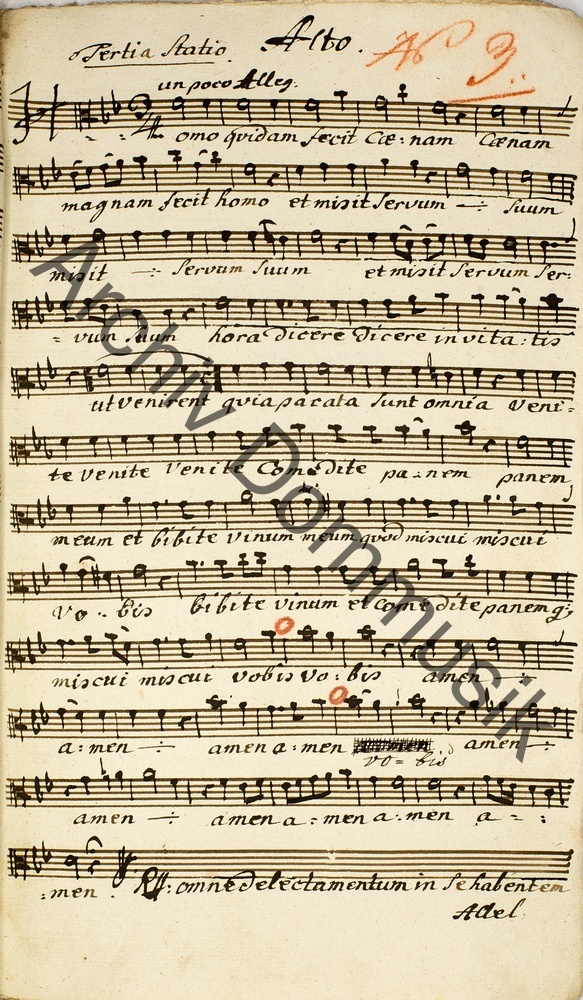 Tertia Statio. Alto. No 3.
un poco Alleg:
Homo quidam fecit Cæ:nam Cænam
magnam fecit homo et misit servum -:- suum
misit -:- servum suum et misit servum ser:
=vum suum hora dicere dicere invita:tis
ut venirent quia parata sunt omnia veni=
te venite venite Comedite pa=nem panem
meum et bibite vinum meum quod miscui miscui
vo=bis bibite vinum et comedite panem q;
miscui miscui vobis vo:bis amen
a:men -:- amen a:men amen -:-
vo=bis
amen -:- amen a:men a:men a=:
:men. omne delectamentum in se habentem
Allel
Archiv Dommusik